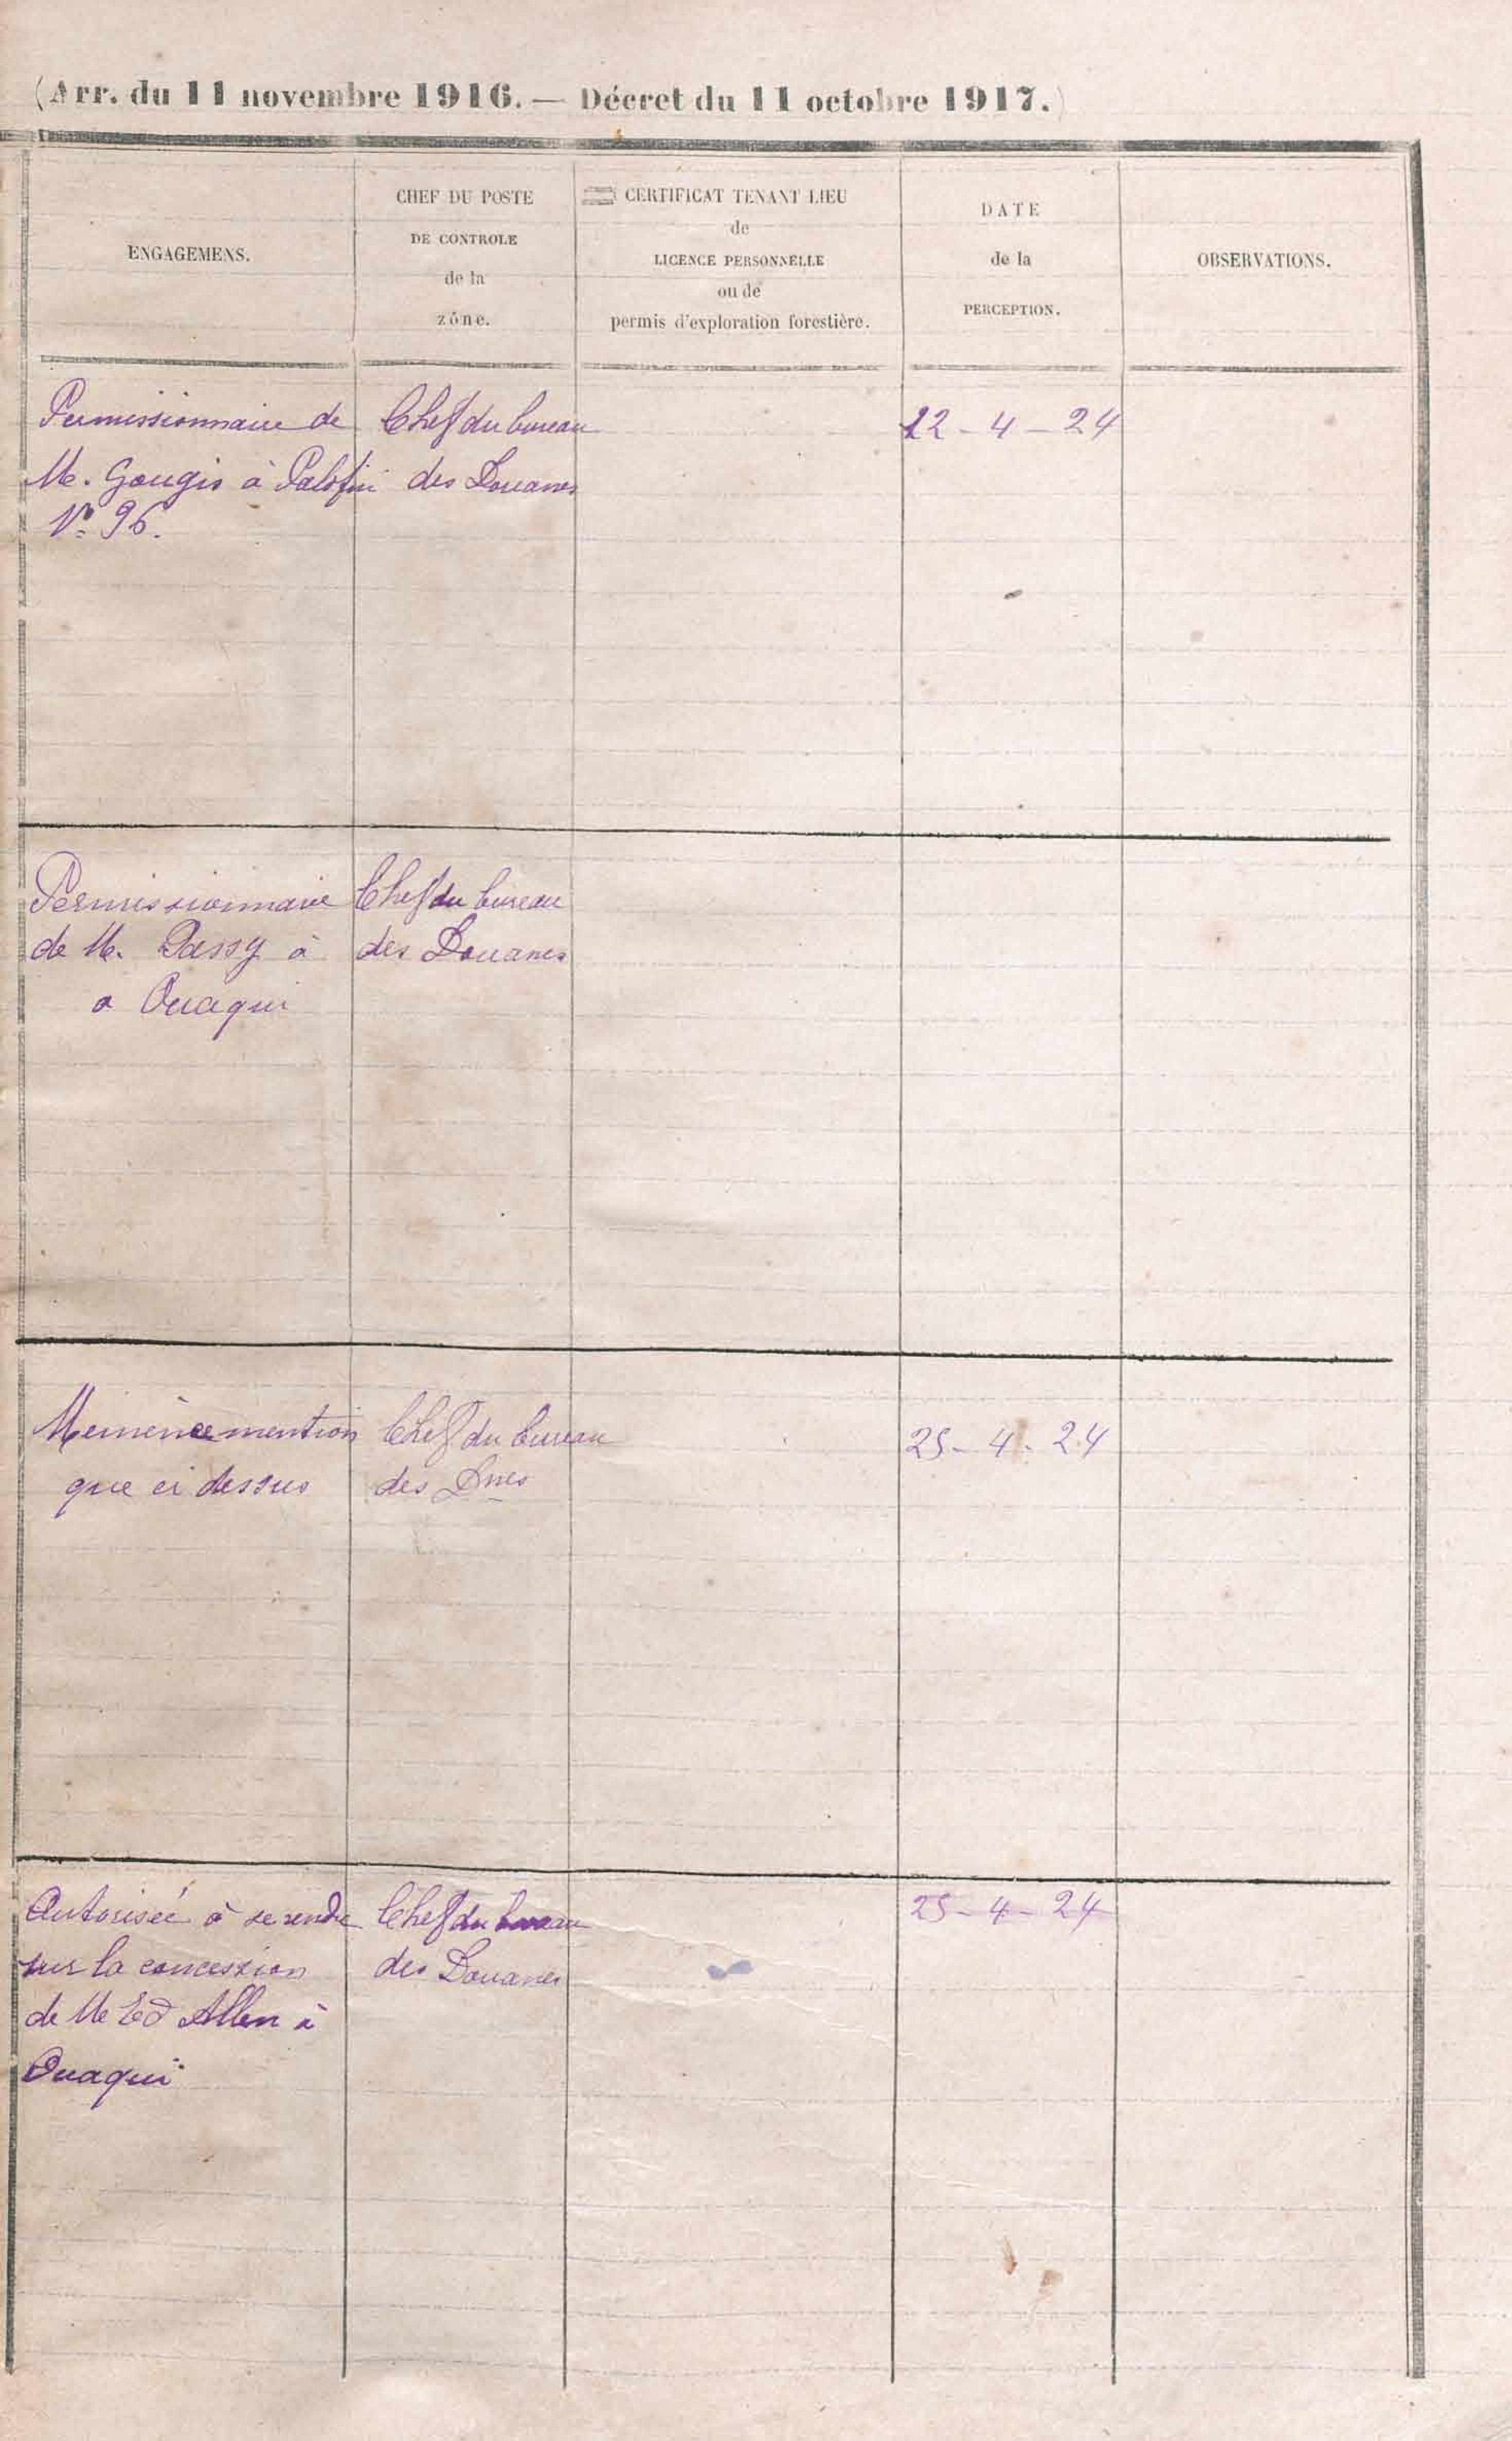 (Arr. du 11 novembre 1916. — Décret du 11 octobre 1917.)
ENGAGEMENS.
CHEF DU POSTE
DE CONTROLE
de la
zône.
CERTIFICAT TENANT LIEU
de
LICENCE PERSONNELLE
ou de
permis d'exploration forestière.
DATE
de la
PERCEPTION.
OBSERVATIONS.
Permissionnaire de
M. Gougis à Palofini
N° 96.
Chef du bureau
des Douanes
12 - 4 - 24
Permissionnaire
de M. Passy à
a Ouaqui
Chef du bureau
des Douanes
mention
que ci dessus
Chef du bureau
des Dnes
25 - 4 - 24
Autorisée à se rendre
sur la concession
de M Ed Allen à
Ouaqui
Chef du bureau
des Douanes
25 - 4 - 24